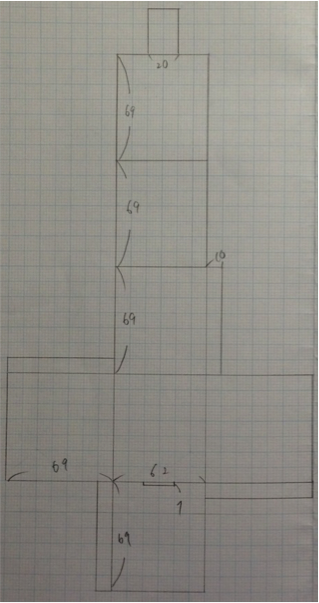 20
69
69
10
69
69
62
1
69